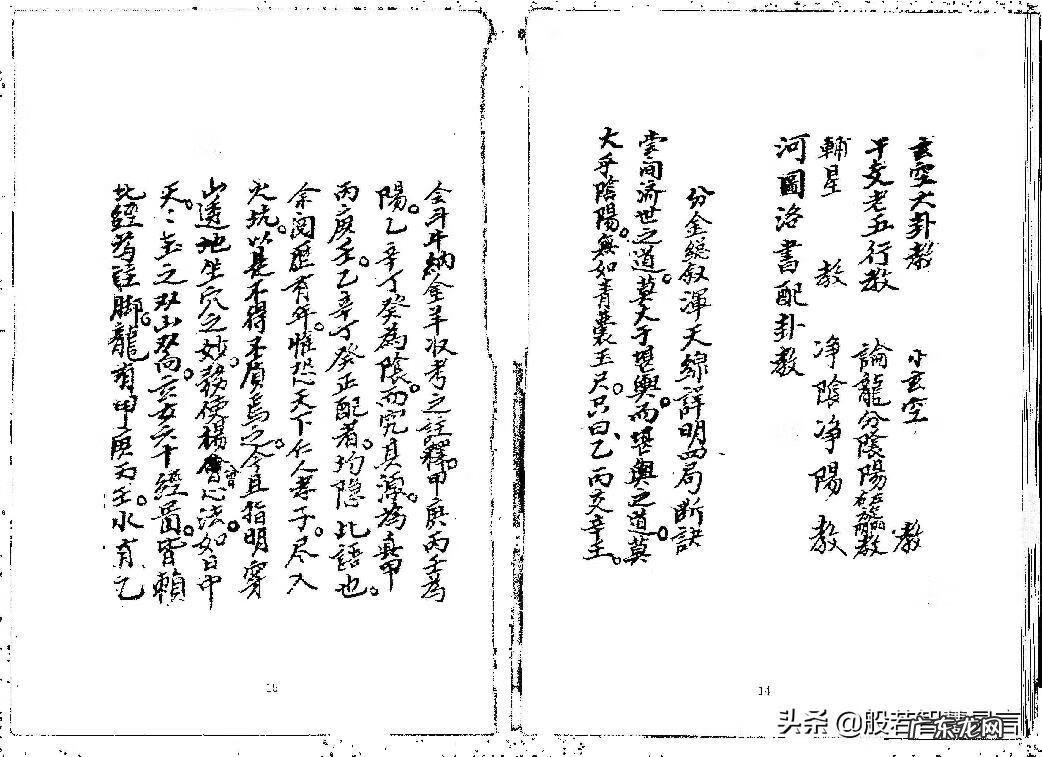 玄空大卦教　小玄空　教
干支老五行教　論龍分陰陽　教
輔星　教　净陰净陽　教
河圖洛書配卦教
分金總叙渾天線詳明四局断訣
堂间济世之道。莫大于堪輿。而堪輿之道。莫
大乎陰陽。無如青囊玉尺。只曰乙丙交辛壬。
会斗牛納金羊收考之註釋。甲庚丙壬為
陽。乙辛丁癸為陰。而究其源。為真甲
丙庚壬。乙辛丁癸正配者。均隐此語也。
余阅歷有年。惟恐天下仁人孝子。尽入
火坑。以是不得不贗焉之。今且指明穿
山透地生穴之妙。務使楊曾心法。如日中
天。天玉之双山双向。玄女六十經。皆賴
此經為註脚。龍有甲庚丙壬。水有乙
14
头条 @般若智慧
广东龙网